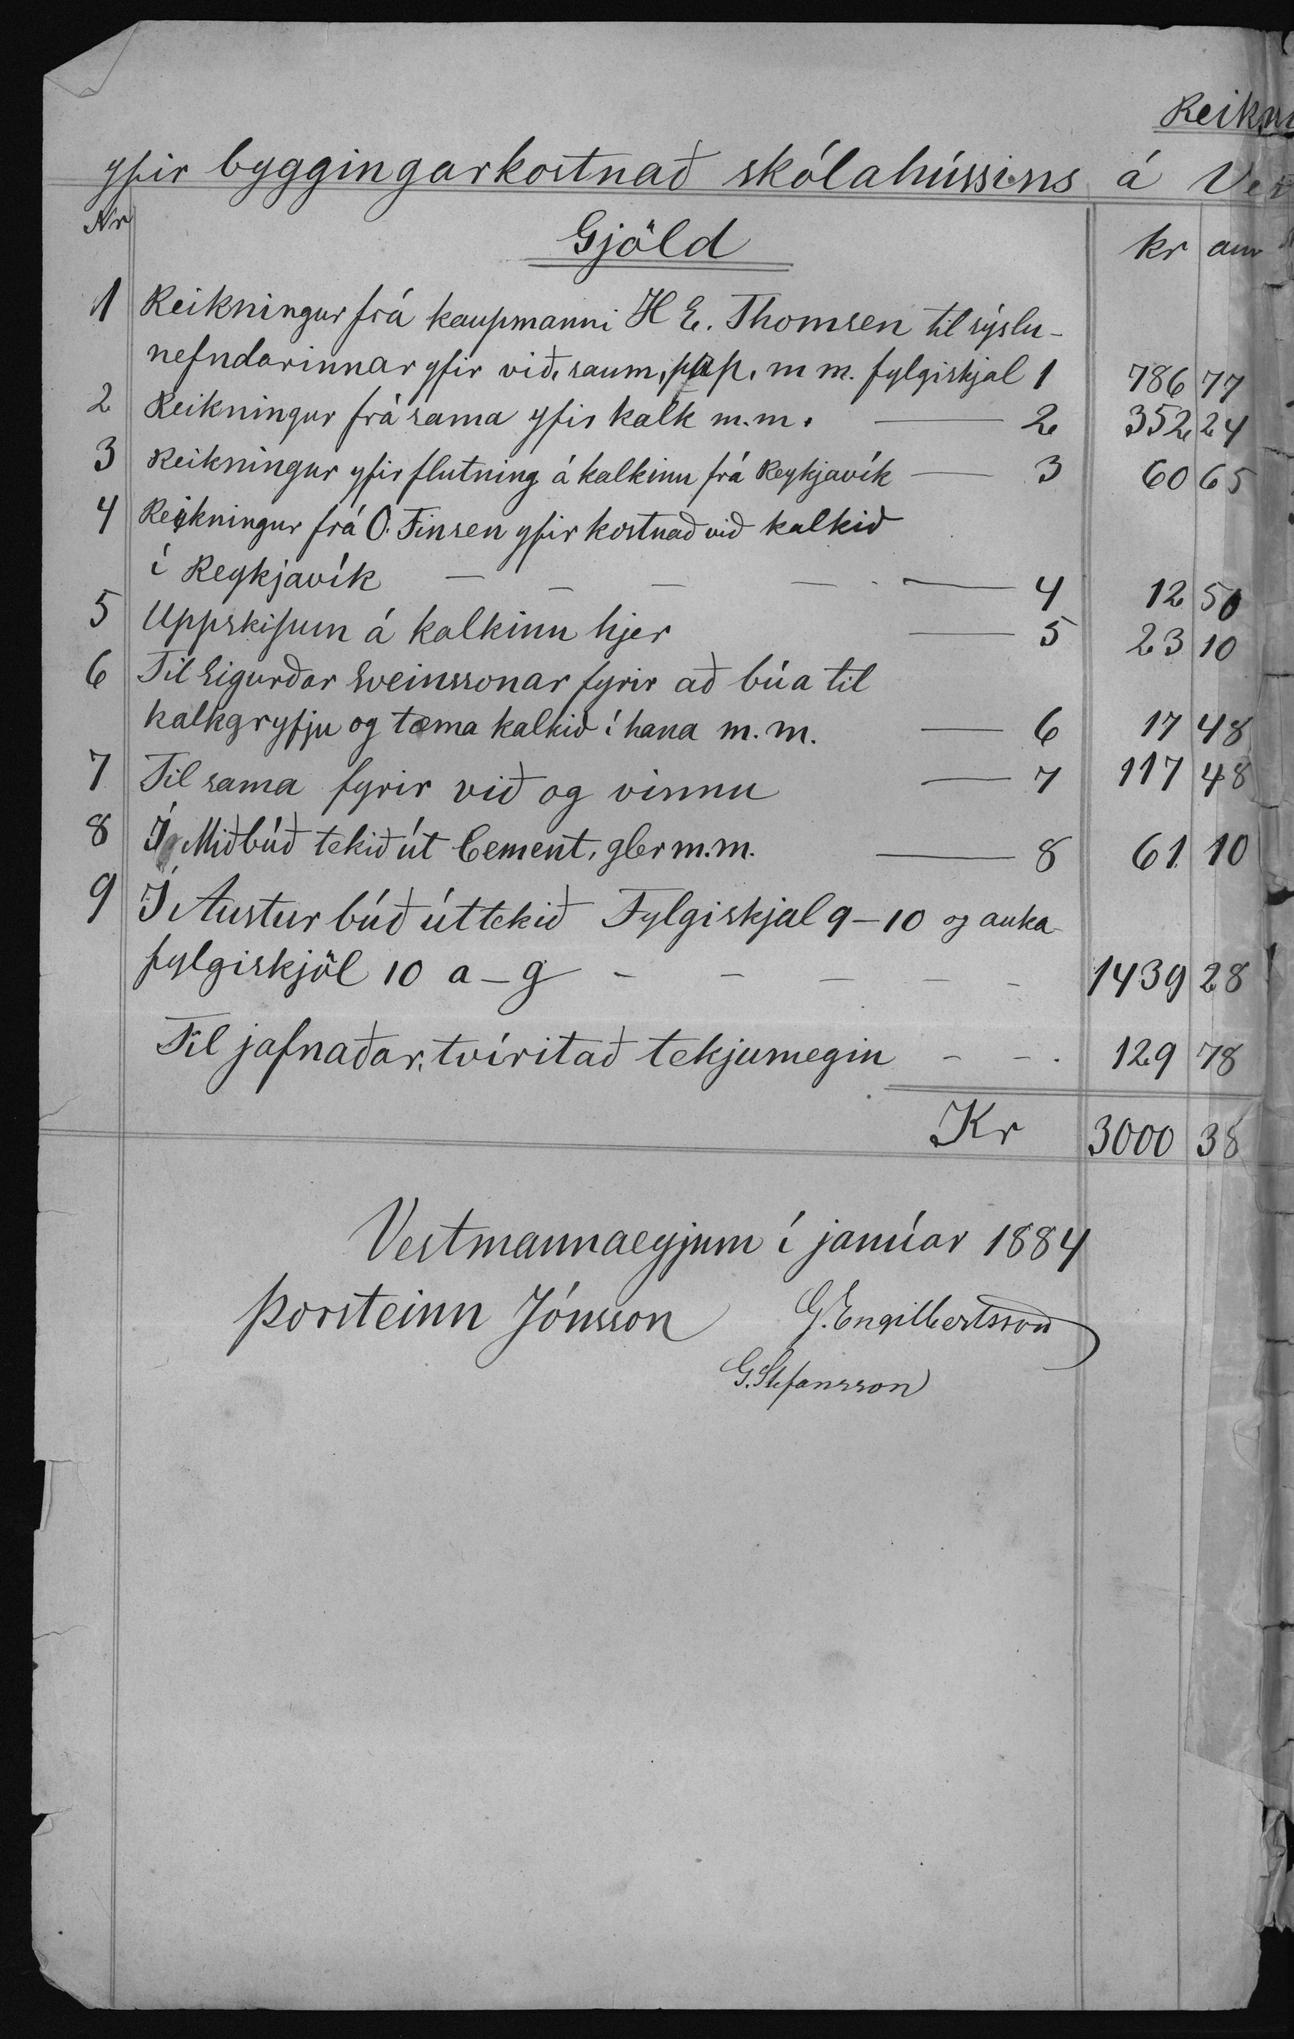 Reikn
yfir byggingarkostnað skólahússins á Ves
Nr Gjöld kr aur
1 Reikningur frá kaupmanni H E. Thomsen til sýslu-
nefndarinnar yfir við, saum, pap. m m. fylgiskjal 1 786 77
2 Reikningur frá sama yfir kalk m.m. — 2 352 24
3 Reikningur yfir flutning á kalkinu frá Reykjavík — 3 60 65
4 Reikningur frá O. Finsen yfir kostnað við kalkið
í Reykjavík — — — — — 4 12 50
5 Uppskipun á kalkinu hjer — 5 23 10
6 Til Sigurðar Sveinssonar fyrir að búa til
kalkgryfju og tæma kalkið í hana m. m. — 6 17 48
7 Til sama fyrir við og vinnu — 7 117 48
8 Í Miðbúð tekið út Cement, gler m.m. — 8 61 10
9 Í Austurbúð úttekið Fylgiskjal 9-10 og auka
fylgiskjöl 10 a-g - - - - - 1439 28
Til jafnaðar, tvíritað tekjumegin - - . 129 78
Kr 3000 38
Vestmannaeyjum í janúar 1884
Þorsteinn Jónsson G. Engilbertsson
G. Stefansson